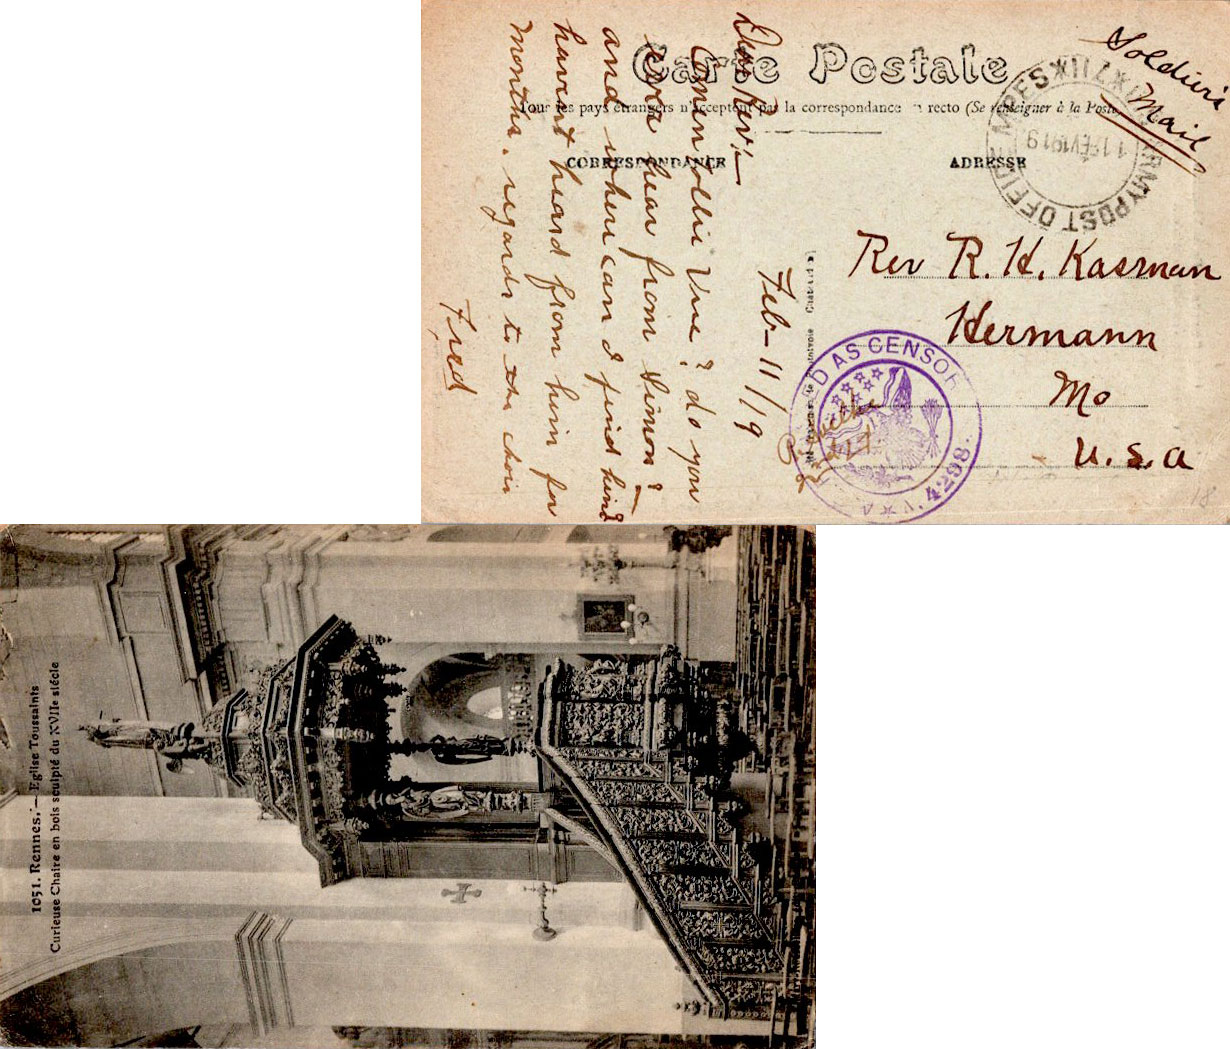 Carte Postale
Tous les pays étrangers n'acceptent pas la correspondance au recto (Se renseigner à la Poste)
CORRESPONDANCE
ADRESSE
Soldier's
Mail
ARMY POST OFFICE
11 FEV 1919
Rev R. H. Kasmann
Hermann
Mo
U. S. A
AS CENSOR
A. 4298
Feb-11/19
Dear Rev:—
Comin tollie Vue? do you
ever hear from Simon?
and where can I find him?
havent heard from him for
months. regards to the choir
Fred
1051. Rennes. — Eglise Toussaints
Curieuse Chaire en bois sculpté du XVIIe siécle